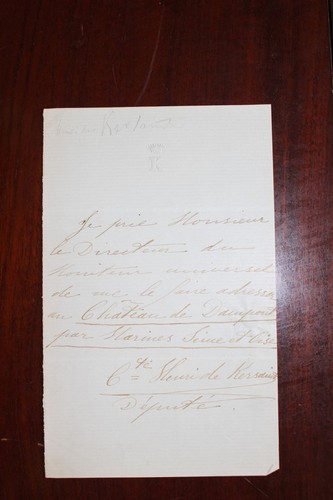 K
Je prie Monsieur
le Directeur du
Moniteur universel
de me le faire adresser
au Château de Dampont
par Marines Seine et Oise
Cte Henri de Kersaint
Député.